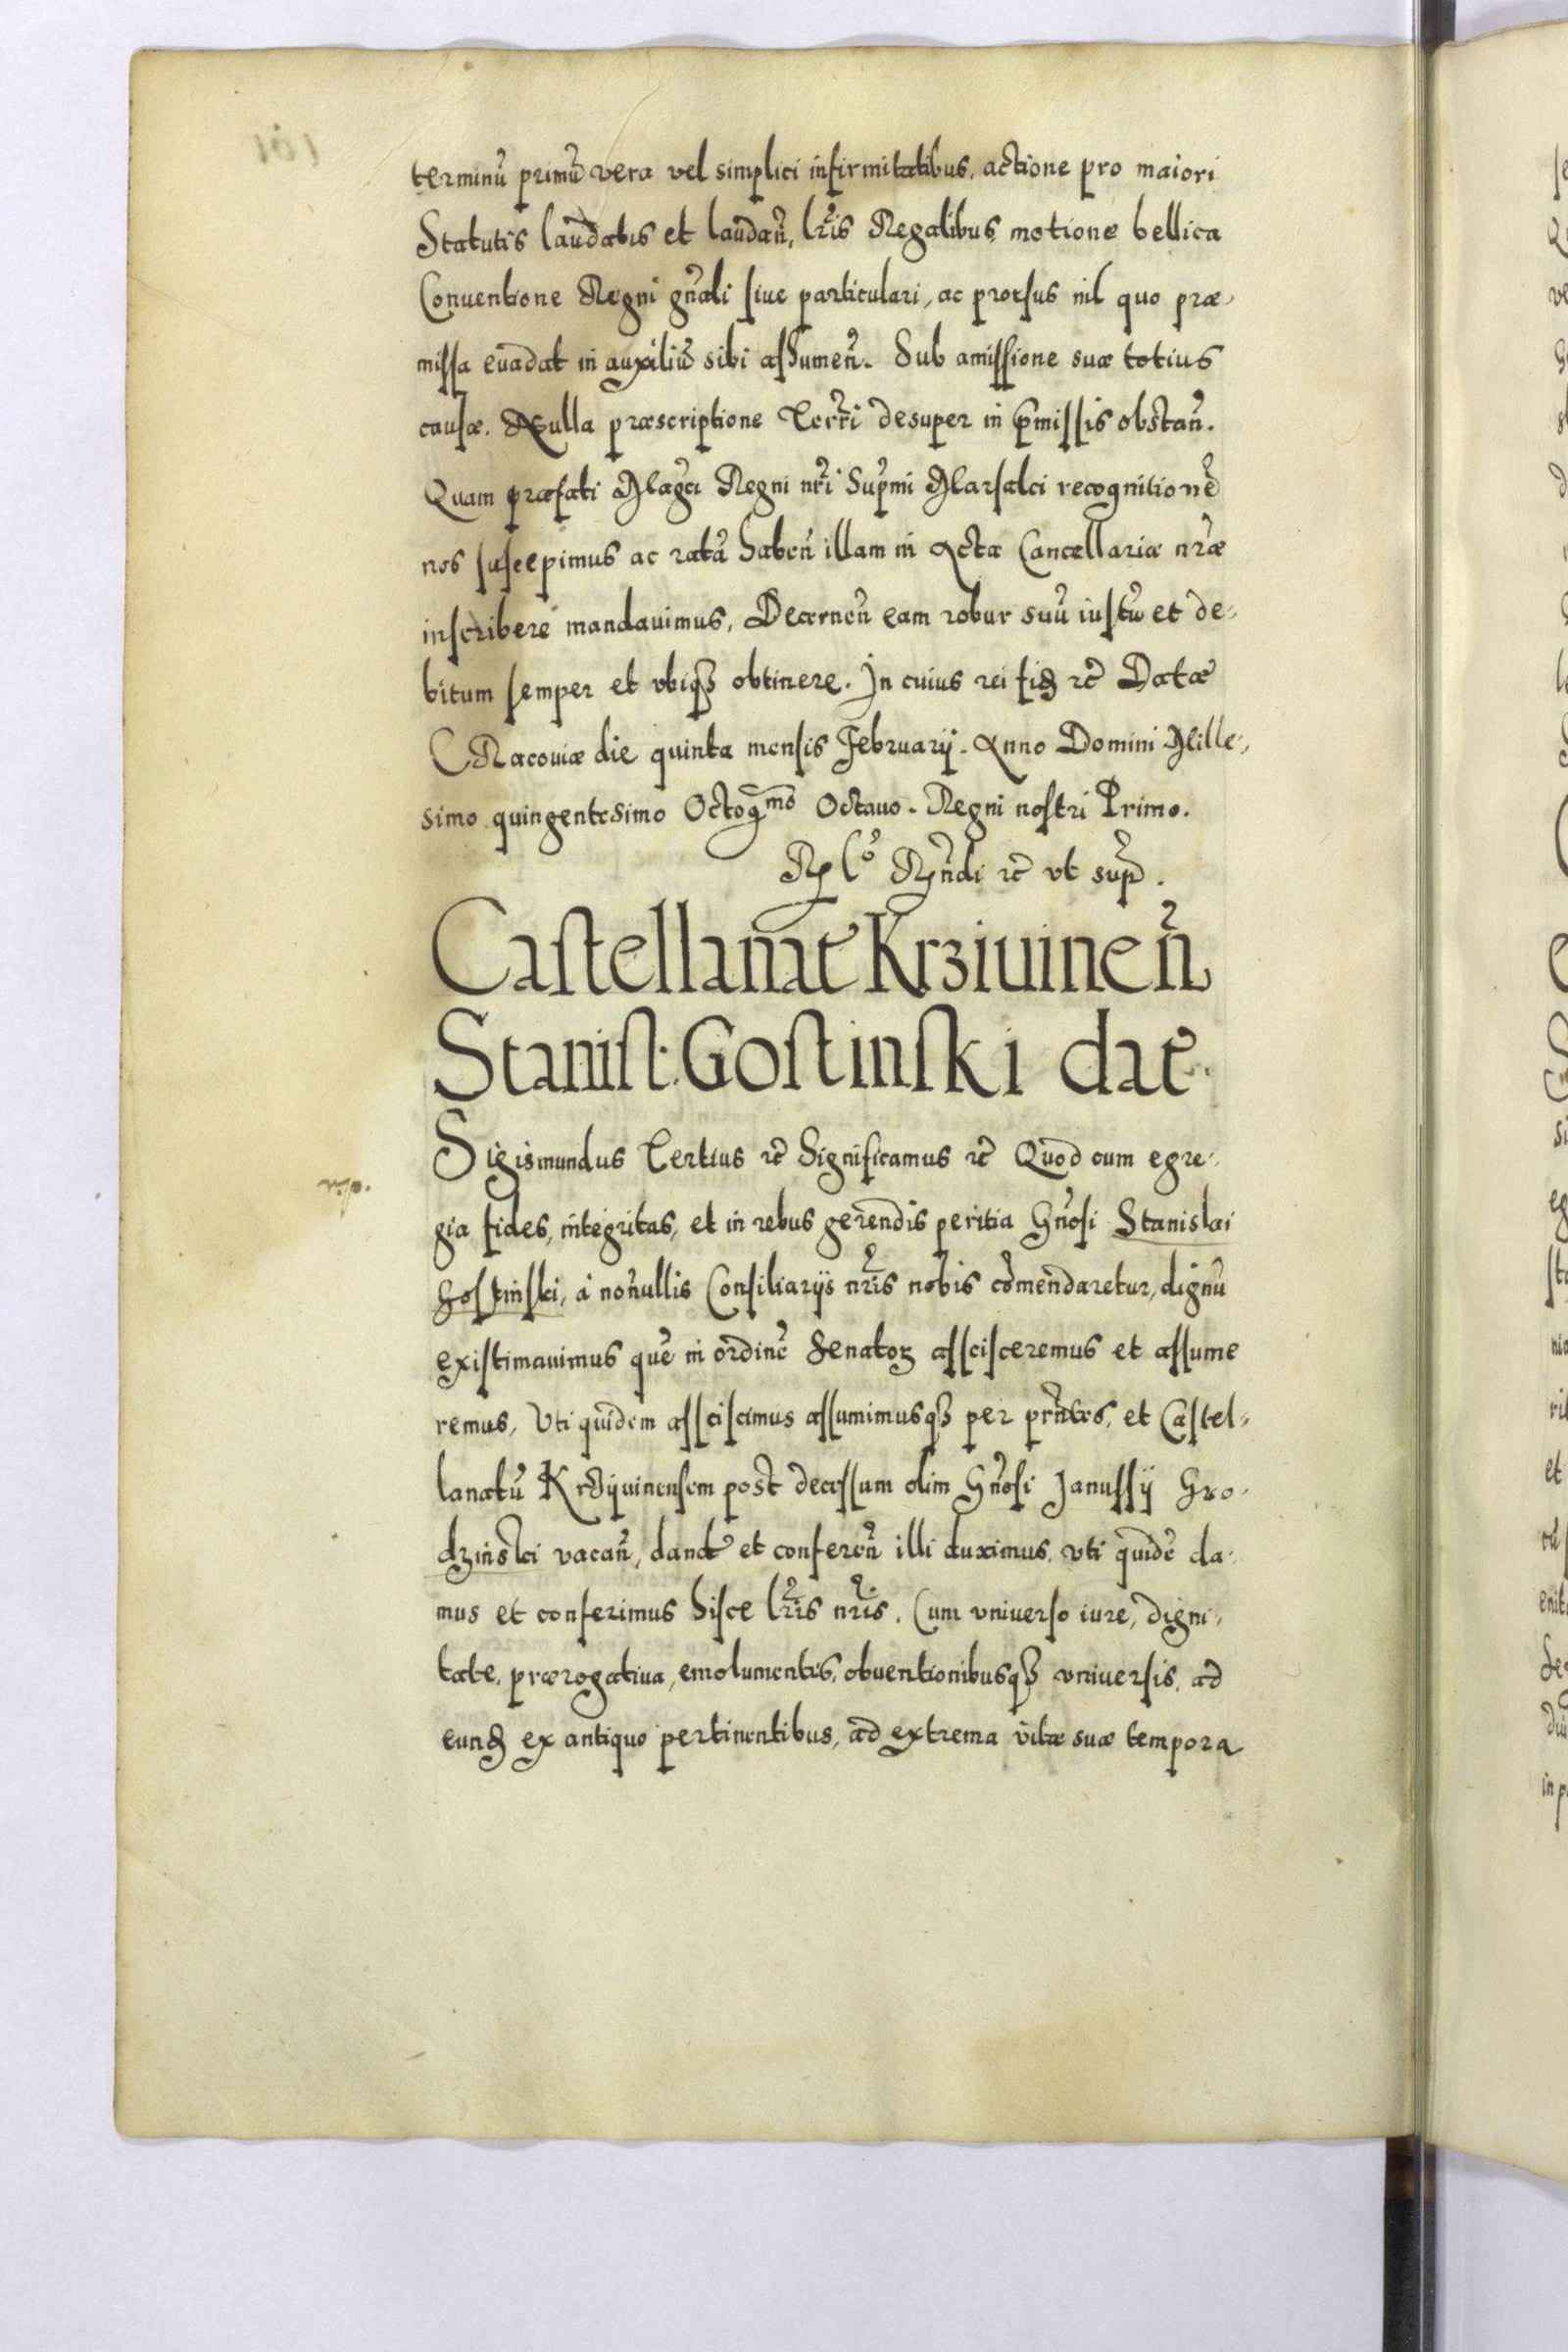 terminū primū vera vel simplici infirmitatibus, actione pro maiori
Statutis laudatis et laudan̄, lr̄is Regalibus motione bellica
Conuentione Regni gn̄ali siue particulari, ac prorsus nil quo præ-
missa euadat in auxiliū sibi assumen̄. Sub amissione suæ totius
causæ. Nulla præscriptione Terrr̄i desuper in p̄missis obstan̄.
Quam præfati Maḡci Regni nr̄i Sup̄mi Marsalci recognitionē
nos suscepimus ac ratā haben̄ illam in Acta Cancellariæ nr̄æ
inscribere mandauimus, Decernen̄ eam robur suū iustū et de-
bitum semper et vbiqꝫ obtinere. In cuius rei fiđ rc̄ Datæ
CRacouiæ die quinta mensis Februarij. Anno Domini Mille-
simo quingentesimo Octogmo Octauo. Regni nostri Primo.
Rndi rc̄ vt sup̄.
Castellanat Krziuinen̄
Stanisl: Gostinski dat
Sigismundus Tertius rc̄ Significamus rc̄ Quod cum egre-
gia fides, integritas, et in rebus gerendis peritia Gn̄osi Stanislai
Gostinski, a non̄ullis Consiliarijs nr̄is nobis com̄endaretur, dignū
existimauimus quē in ordinē Senatoꝝ asscisceremus et assume
remus, Vti quidem assciscimus assumimusqꝫ per prn̄tes, et Castel-
lanatū Krzijuinensem post decessum olim Gn̄osi Janussij Gro-
dzinski vacan̄, dand et conferen̄ illi duximus, vti quidē da-
mus et conferimus hisce lr̄is nr̄is. Cum vniuerso iure, digni-
tate, prærogatiua, emolumentis, obuentionibusqꝫ vniuersis, ad
eunđ ex antiquo pertinentibus, ad extrema vitæ suæ tempora